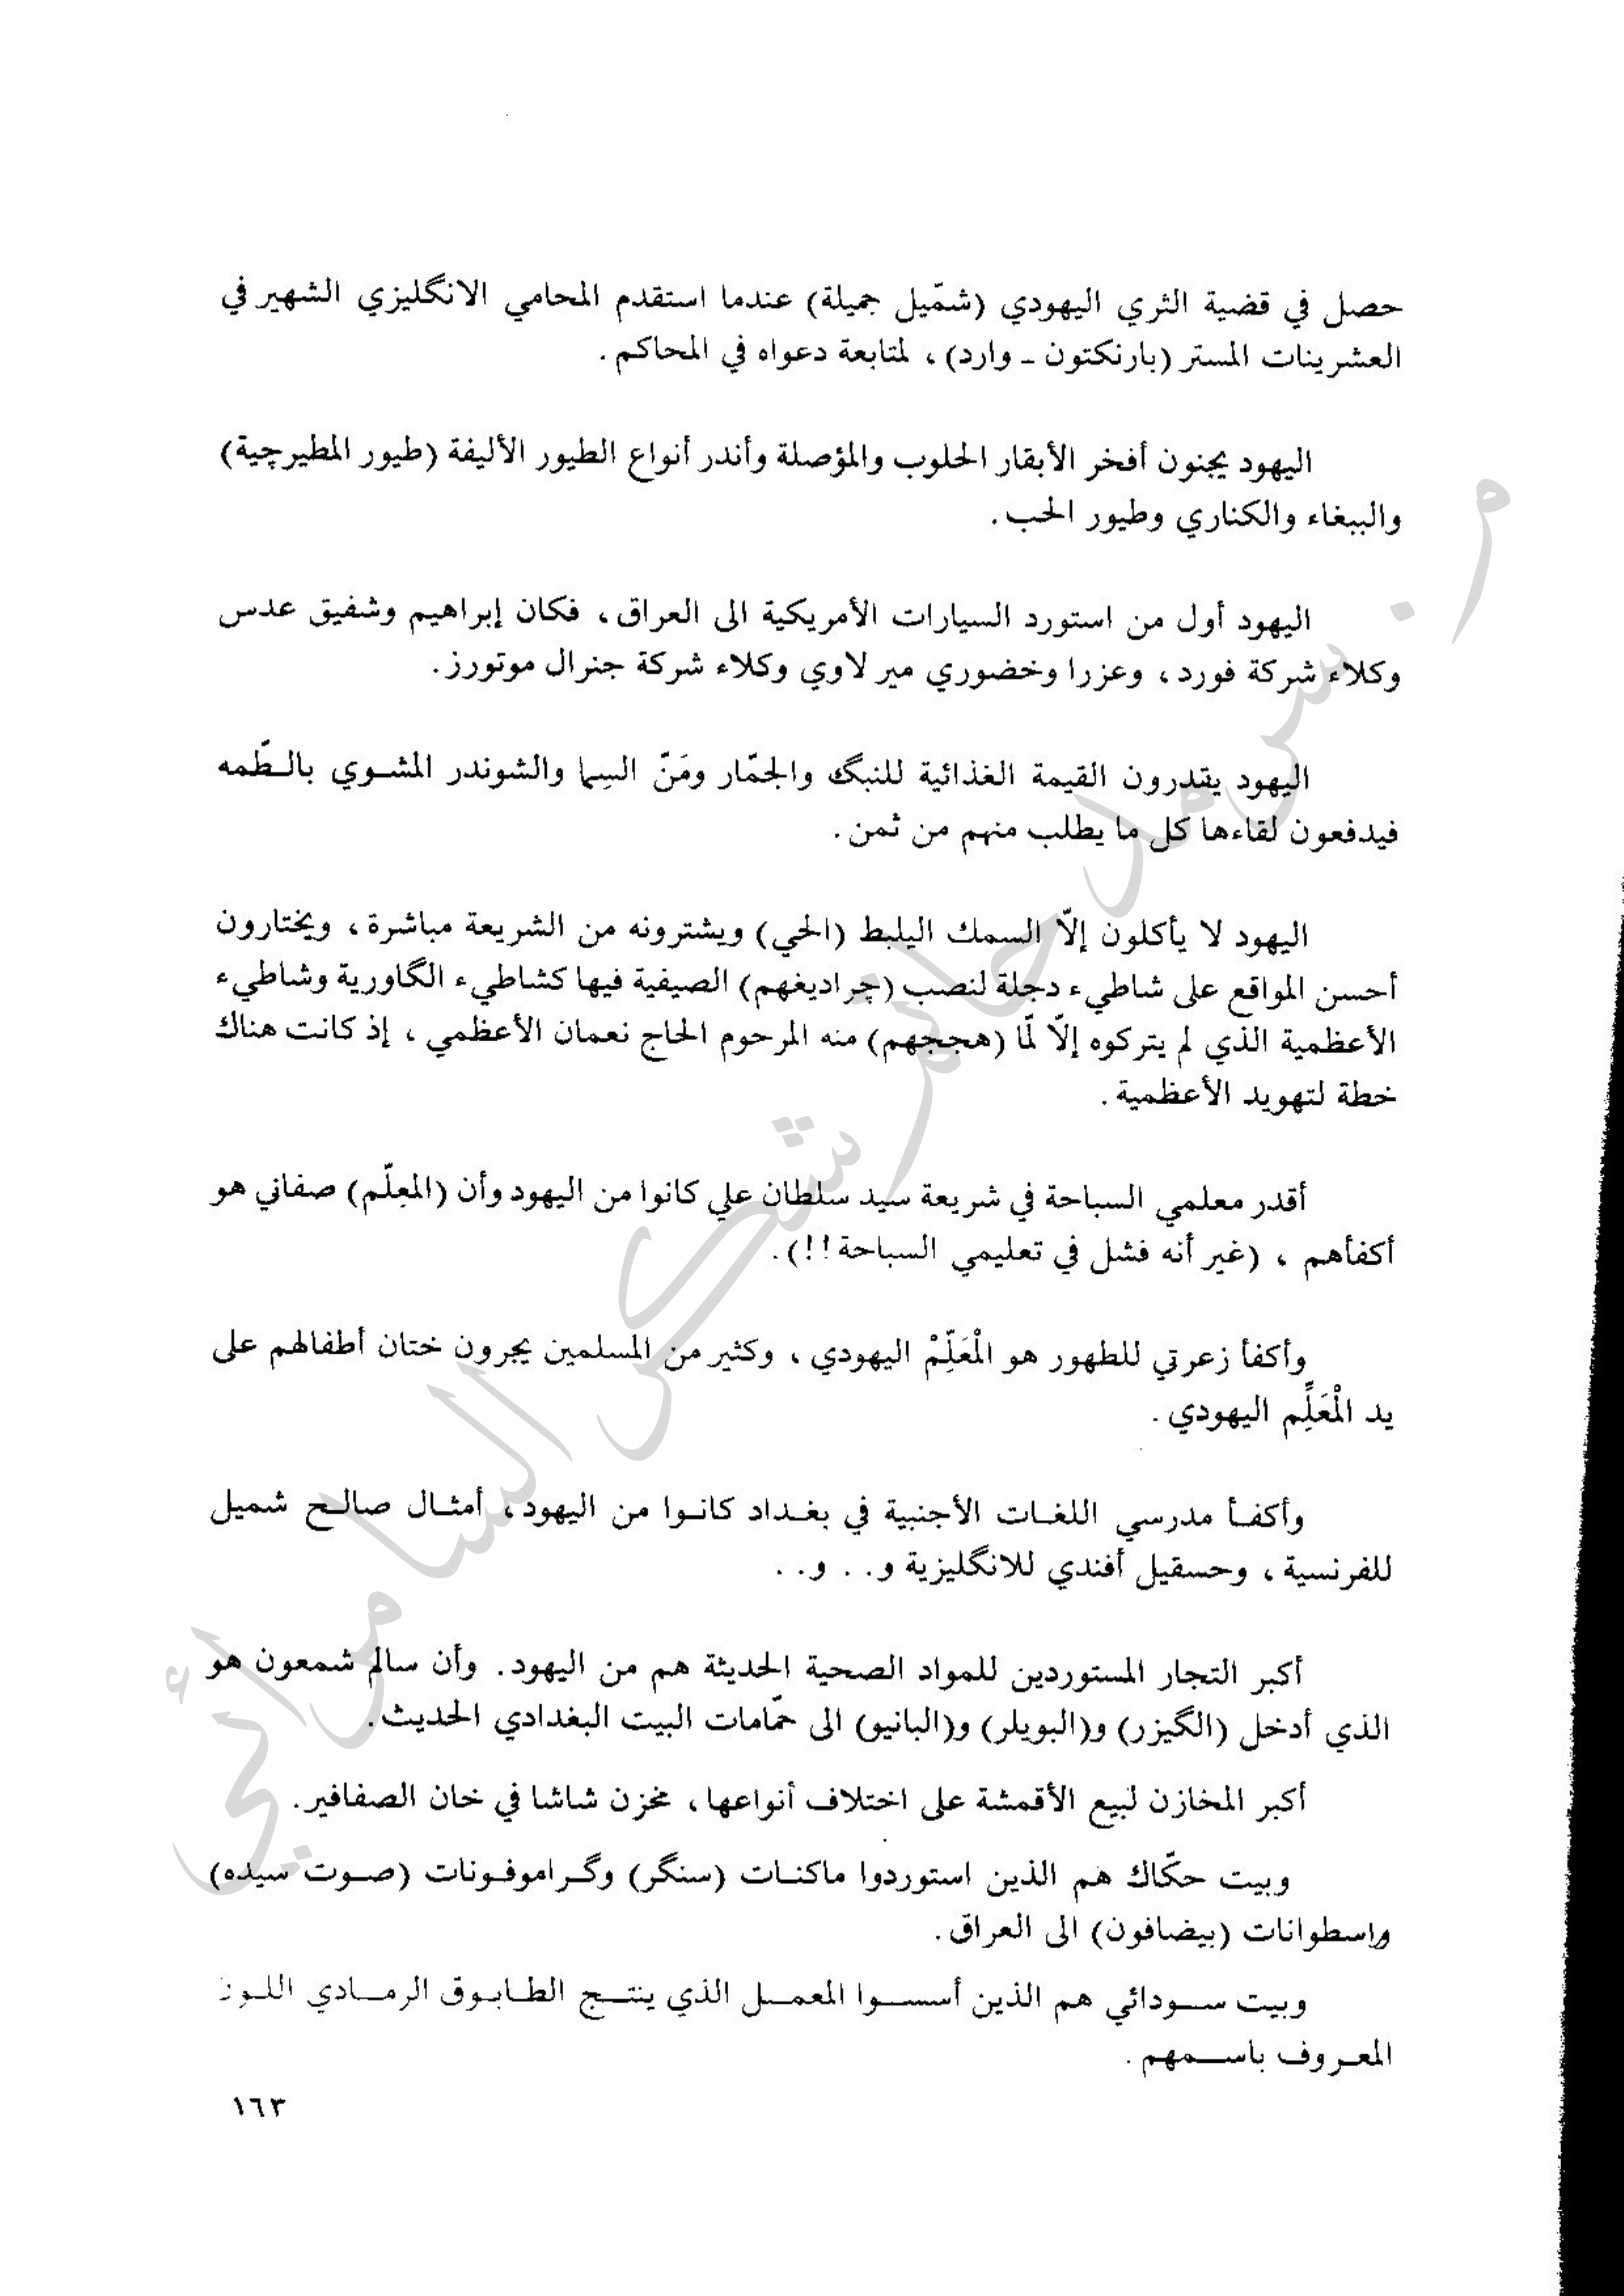 حصل في قضية الثري اليهودي (شمّيل جميلة) عندما استقدم المحامي الانگليزي الشهير في
العشرينات المستر (بارنكتون ـ وارد) ، لمتابعة دعواه في المحاكم .
اليهود يجنون أفخر الأبقار الحلوب والمؤصلة وأندر أنواع الطيور الأليفة (طيور المطيرچية)
والببغاء والكناري وطيور الحب .
اليهود أول من استورد السيارات الأمريكية الى العراق ، فكان إبراهيم وشفيق عدس
وكلاء شركة فورد ، وعزرا وخضوري مير لاوي وكلاء شركة جنرال موتورز .
اليهود يقدرون القيمة الغذائية للنبگ والجمّار ومَنّ السِما والشوندر المشوي بالطّمه
فيدفعون لقاءها كل ما يطلب منهم من ثمن .
اليهود لا يأكلون إلاّ السمك اليلبط (الحي) ويشترونه من الشريعة مباشرة ، ويختارون
أحسن المواقع على شاطيء دجلة لنصب (چراديغهم) الصيفية فيها كشاطيء الگاورية وشاطيء
الأعظمية الذي لم يتركوه إلاّ لمّا (هججهم) منه المرحوم الحاج نعمان الأعظمي ، إذ كانت هناك
خطة لتهويد الأعظمية .
أقدر معلمي السباحة في شريعة سيد سلطان علي كانوا من اليهود وأن (المعِلّم) صفاني هو
أكفأهم ، (غير أنه فشل في تعليمي السباحة !!) .
وأكفأ زعرتي للطهور هو الْمَعَلِّمْ اليهودي ، وكثير من المسلمين يجرون ختان أطفالهم على
يد الْمَعَلِّم اليهودي .
وأكفأ مدرسي اللغات الأجنبية في بغداد كانوا من اليهود ، أمثال صالح شميل
للفرنسية ، وحسقيل أفندي للانگليزية و . . و . .
أكبر التجار المستوردين للمواد الصحية الحديثة هم من اليهود . وأن سالم شمعون هو
الذي أدخل (الگيزر) و(البويلر) و(البانيو) الى حمّامات البيت البغدادي الحديث .
أكبر المخازن لبيع الأقمشة على اختلاف أنواعها ، مخزن شاشا في خان الصفافير .
وبيت حكّاك هم الذين استوردوا ماكنات (سنگر) وگراموفونات (صوت سيده)
واسطوانات (بيضافون) الى العراق .
وبيت سودائي هم الذين أسسوا المعمل الذي ينتج الطابوق الرمادي اللون
المعروف باسمهم .
١٦٣
م . سرمد حاتم شكر السامرائي